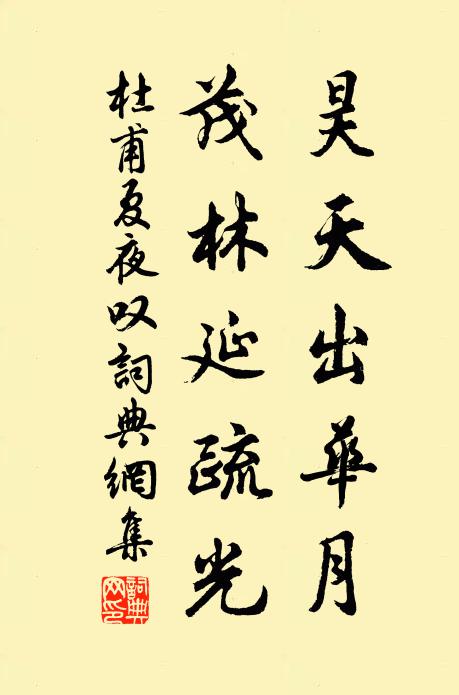 昊天出華月
茂林延疏光
杜甫夏夜叹詞典網集
詞典網印